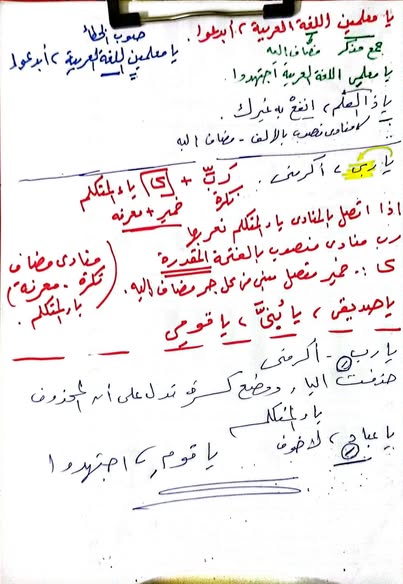 يا معلمين اللغة العربية، أبدعوا.
صوب الخطأ
جمع مذكر مضاف إليه
يا معلمين اللغة العربية، أبدعوا
يا معلمي اللغة العربية اجتهدوا.
يا ذا العلم، انفع به غيرك.
منادى منصوب بالألف - مضاف إليه
يا ربي، أكرمني.
ربّ + ي ياء المتكلم
نكرة ضمير + معرفة
إذا اتصل بالمنادى ياء المتكلم نعربها
رب منادى منصوب بالفتحة المقدرة
ي :. ضمير متصل مبني في محل جر مضاف إليه.
(منادى مضاف
نكرة - معرفة)
ياء المتكلم.
يا صديقي، يا بُنيَّ، يا قومي
يا ربِ - أكرمني
حذفت الياء ووضع كسرة تدل على أن المحذوف
ياء المتكلم
يا عبادِ، لا خوف
يا قومِ، اجتهدوا